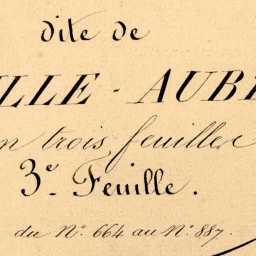 dite de
ILLE - AUBE
n trois feuilles
3e Feuille.
du No. 664 au No. 887.